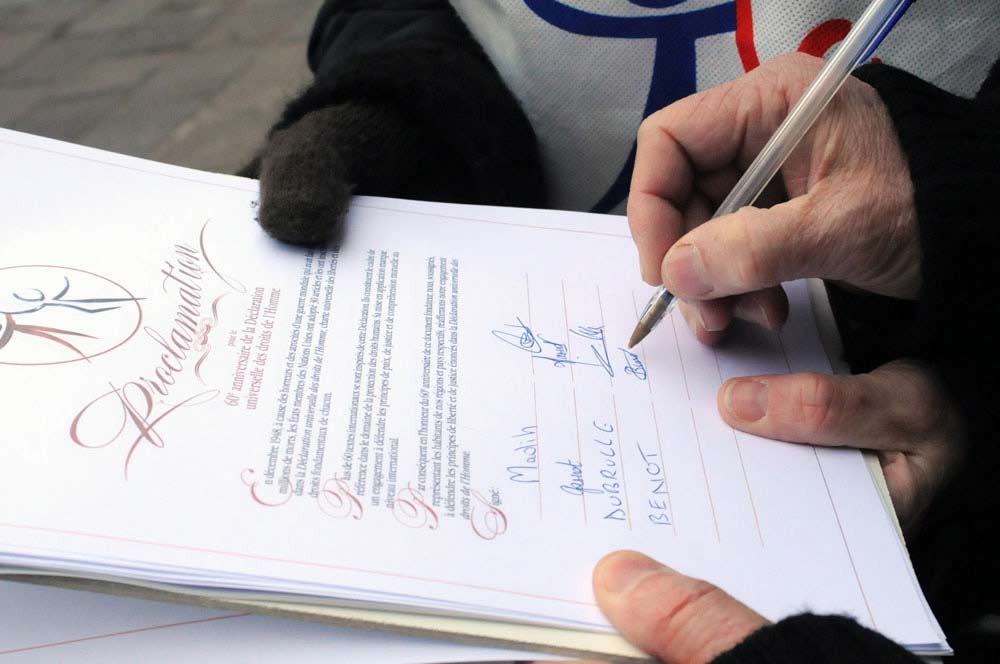 Proclamation
pour le
60e anniversaire de la Déclaration
universelle des droits de l'Homme
En décembre 1948, à cause des horreurs et des atrocités d'une guerre mondiale qui a
millions de morts, les états membres des Nations Unies ont adopté 30 articles et les ont
dans la Déclaration universelle des droits de l'Homme, charte universelle des libertés et
droits fondamentaux de chacun.
Plus de 60 traités internationaux se sont inspirés de cette Déclaration. Ils constituent le cadre de
référence dans le domaine de la protection des droits humains. Sa mise en application marque
un engagement à défendre les principes de paix, de justice et de compréhension mutuelle au
niveau international.
Par conséquent en l'honneur du 60e anniversaire de ce document fondateur, nous, soussignés,
représentant les habitants de nos régions et pays respectifs, réaffirmons notre engagement
à défendre les principes de liberté et de justice énoncés dans la Déclaration universelle des
droits de l'Homme.
Signé:
Madih
DUBRULLE
BENOT